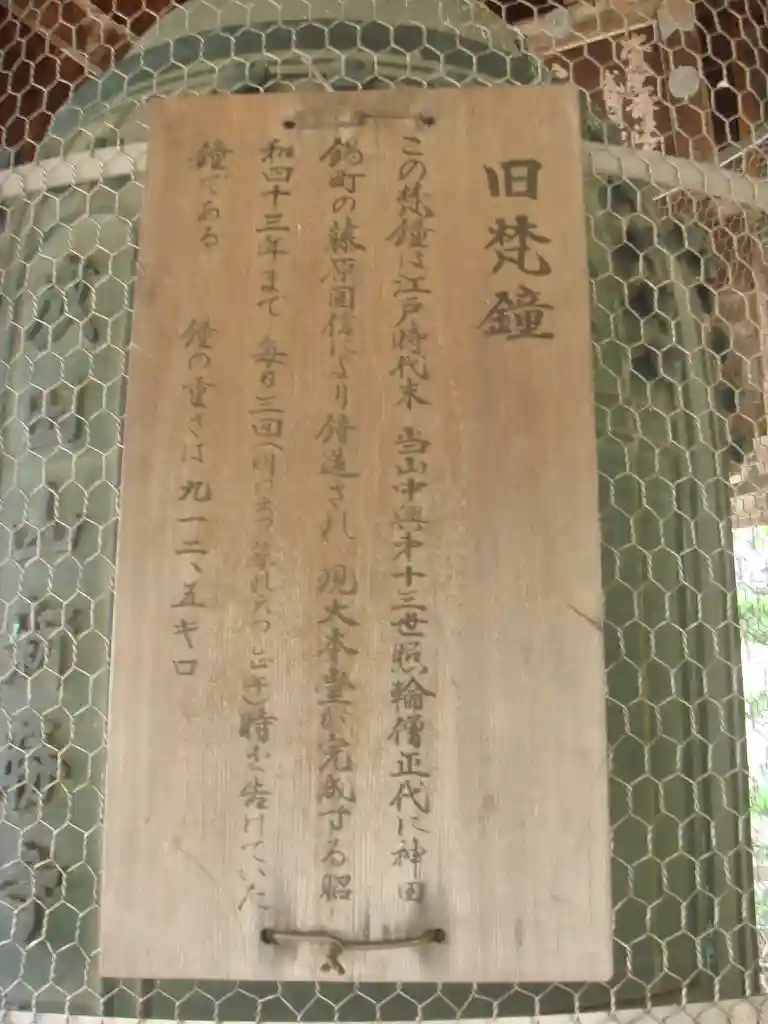 旧梵鐘
この梵鐘は江戸時代末 当山中興才十三世照輪僧正代に神田
鍋町の藤原国信により鋳造され 現大本堂が完成する昭
和四十三年まで 毎日三回(明け六つ 暮れ六つ 正午)時を告げていた
鐘である 鐘の重さは 九一二、五キロ